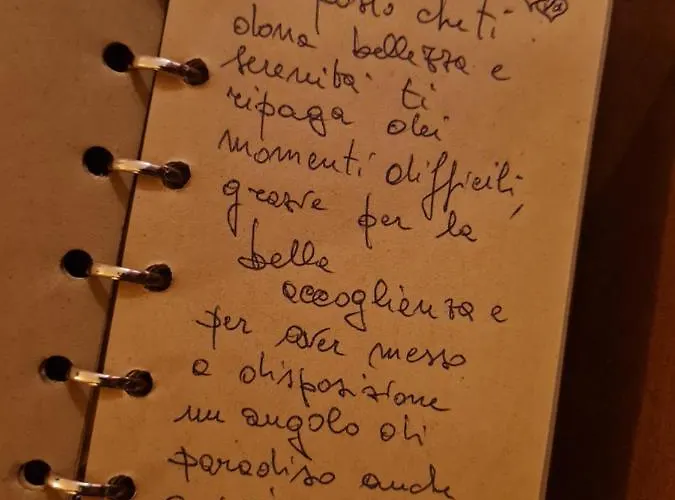 posto che ti
dona bellezza e
serenità ti
ripaga dei
momenti difficili,
grazie per la
bella
accoglienza e
per aver messo
a disposizione
un angolo di
paradiso anche